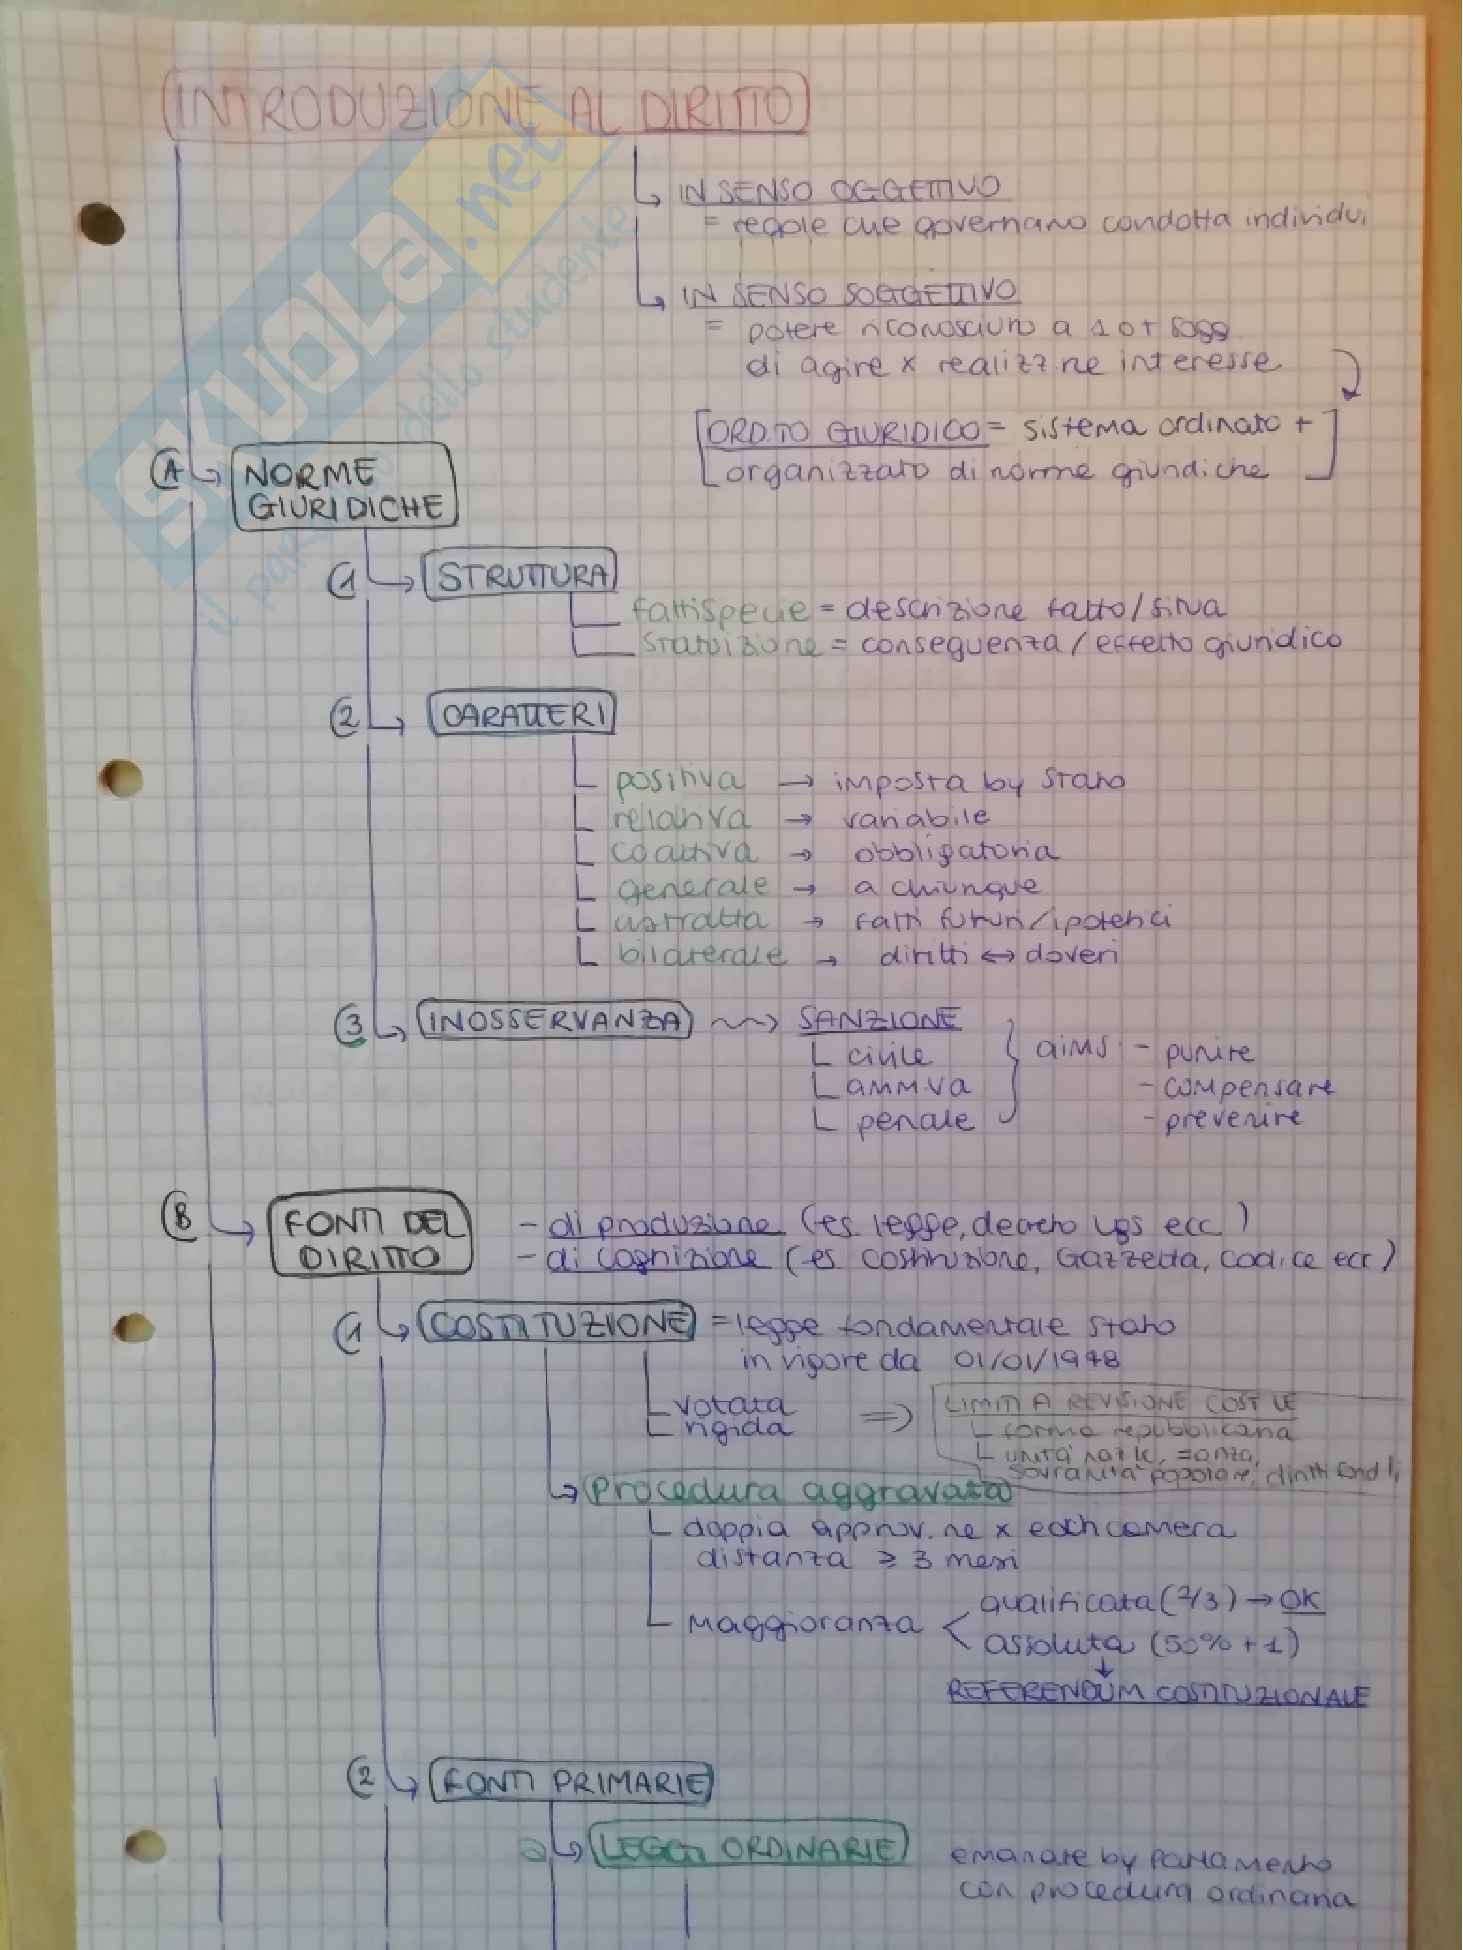 INTRODUZIONE AL DIRITTO
IN SENSO OGGETTIVO
= regole che governano condotta individui
IN SENSO SOGGETTIVO
= potere riconosciuto a 1 o + sogg.
di agire x realizz.ne interesse
ORD.TO GIURIDICO = sistema ordinato +
organizzato di norme giuridiche
A NORME
GIURIDICHE
1 STRUTTURA
fattispecie = descrizione fatto/sit.va
statuizione = conseguenza/effetto giuridico
2 CARATTERI
positiva → imposta by stato
relativa → variabile
coattiva → obbligatoria
generale → a chiunque
astratta → fatti futuri/ipotetici
bilaterale → diritti ↔ doveri
3 INOSSERVANZA SANZIONE
civile aims: - punire
amm.va - compensare
penale - prevenire
B FONTI DEL
DIRITTO
- di produzione (es. legge, decreto lgs ecc.)
- di cognizione (es. costituzione, Gazzetta, codice ecc)
1 COSTITUZIONE = legge fondamentale stato
in vigore da 01/01/1948
votata
rigida
⇒ LIMITI A REVISIONE COST.LE
forma repubblicana
unità naz.le, =anza,
sovranità popolare, diritti fond.li
Procedura aggravata
doppia approv.ne x each camera
distanza ≥ 3 mesi
maggioranza < qualificata (2/3) → OK
assoluta (50% + 1)
REFERENDUM COSTITUZIONALE
2 FONTI PRIMARIE
LEGGI ORDINARIE emanate by parlamento
con procedura ordinaria
SKUOLA.net
il portale dello studente